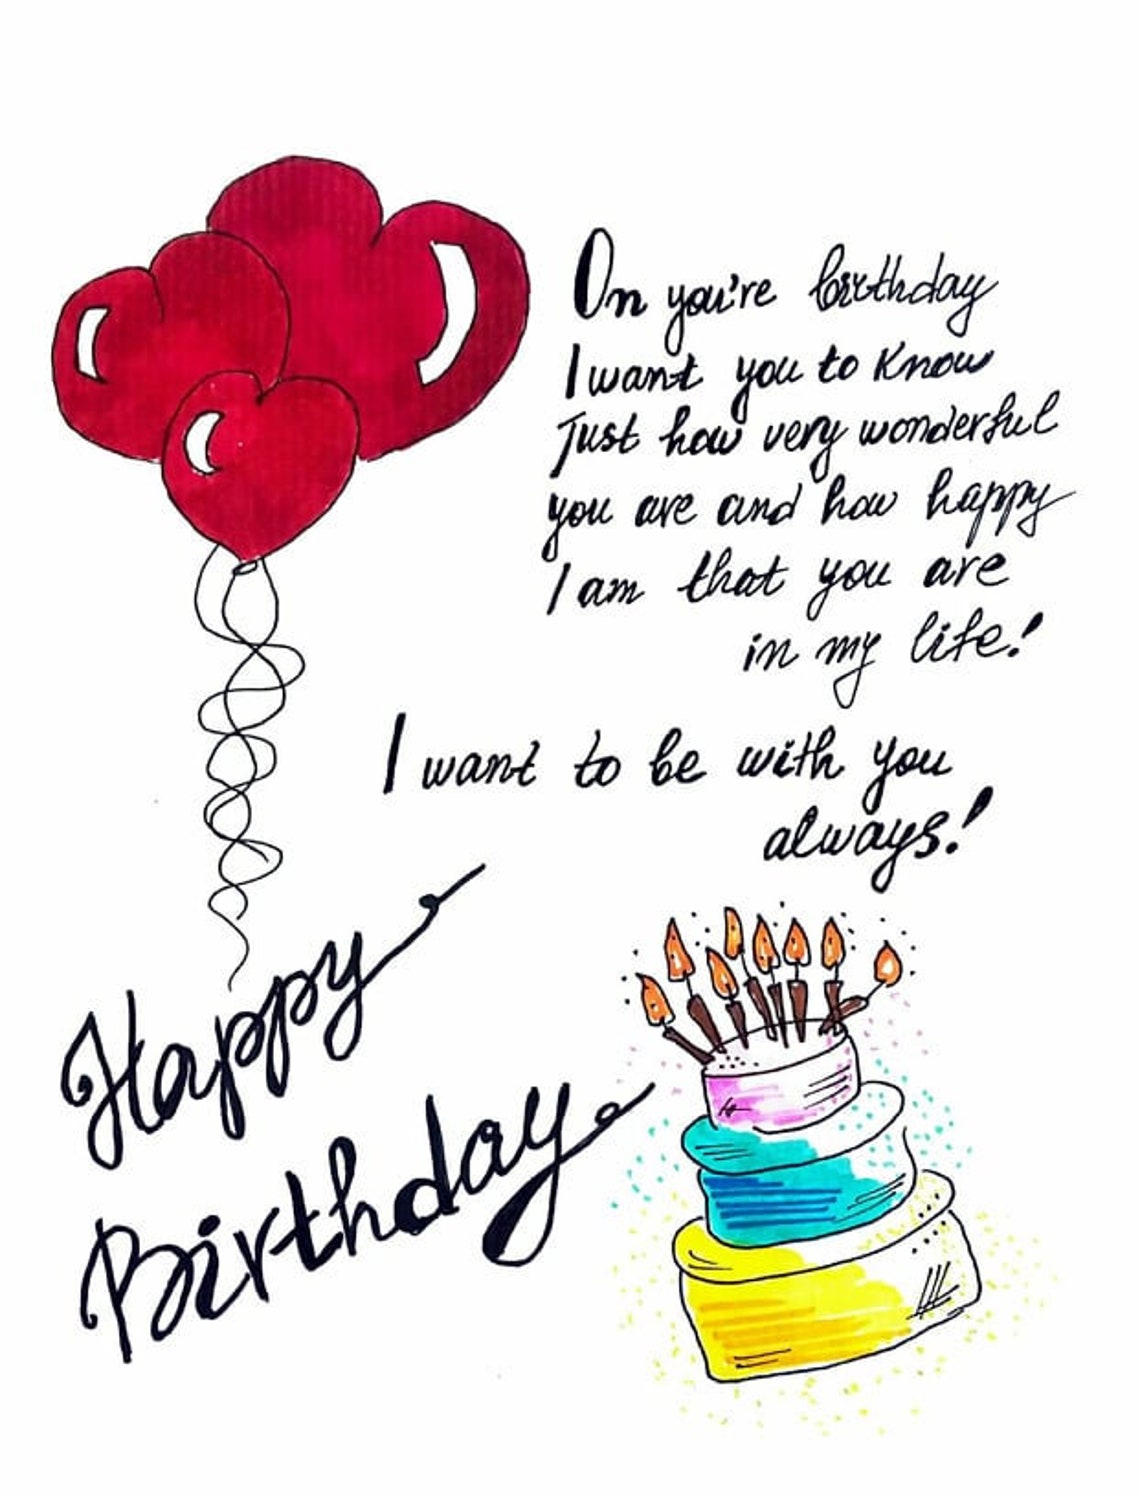 On you're birthday
I want you to know
Just how very wonderful
you are and how happy
I am that you are
in my life!
I want to be with you
always!
Happy
Birthday